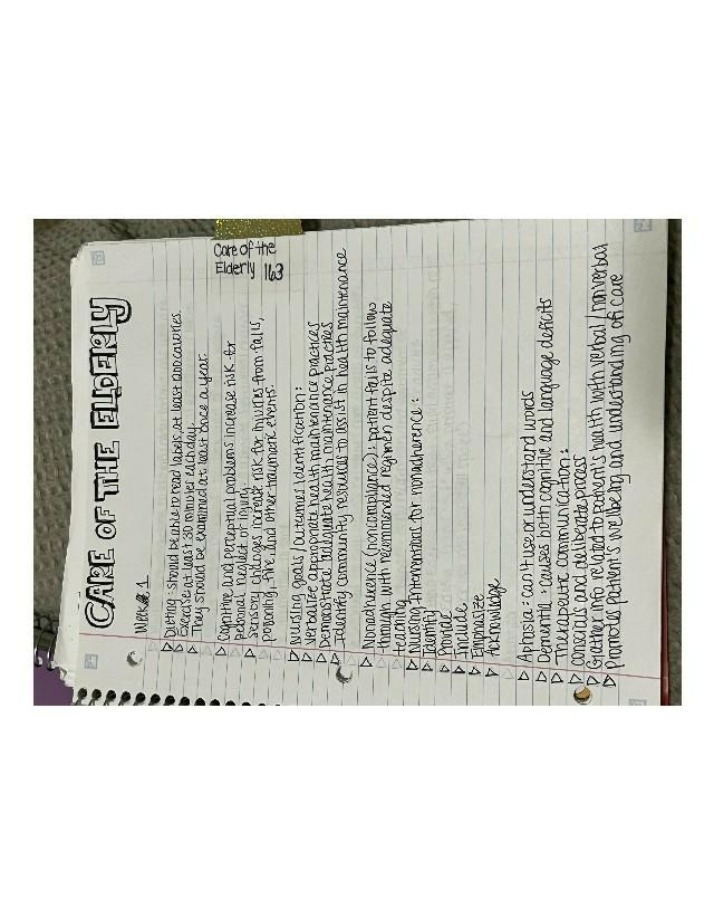 CARE OF THE ELDERLY
Care of the
Elderly 163
Week 1
▷ Dieting: should be able to read labels, at least 1200 calories.
▷ exercise at least 30 minutes each day.
▷ They should be examined at least once a year.
▷ Cognitive and perceptual problems increase risk for
personal neglect or injury.
▷ sensory changes increase risk for injuries from falls,
poisoning, fire, and other traumatic events.
▷ Nursing goals/Outcomes Identification:
▷ Verbalize appropriate health maintenance practices
▷ Demonstrate adequate health maintenance practices
▷ Identify community resources to assist in health maintenance
▷ Nonadherence (noncompliance): patient fails to follow
through with recommended regimen despite adequate
teaching
▷ Nursing Interventions for nonadherence:
▷ Identify
▷ Provide
▷ Include
▷ Emphasize
▷ Acknowledge
▷ Aphasia: can't use or understand words
▷ Dementia: causes both cognitive and language deficits
▷ Therapeutic communication:
▷ conscious and deliberate process
▷ Gather info related to patient's health with verbal/nonverbal
▷ Promotes patient's wellbeing and understanding of care